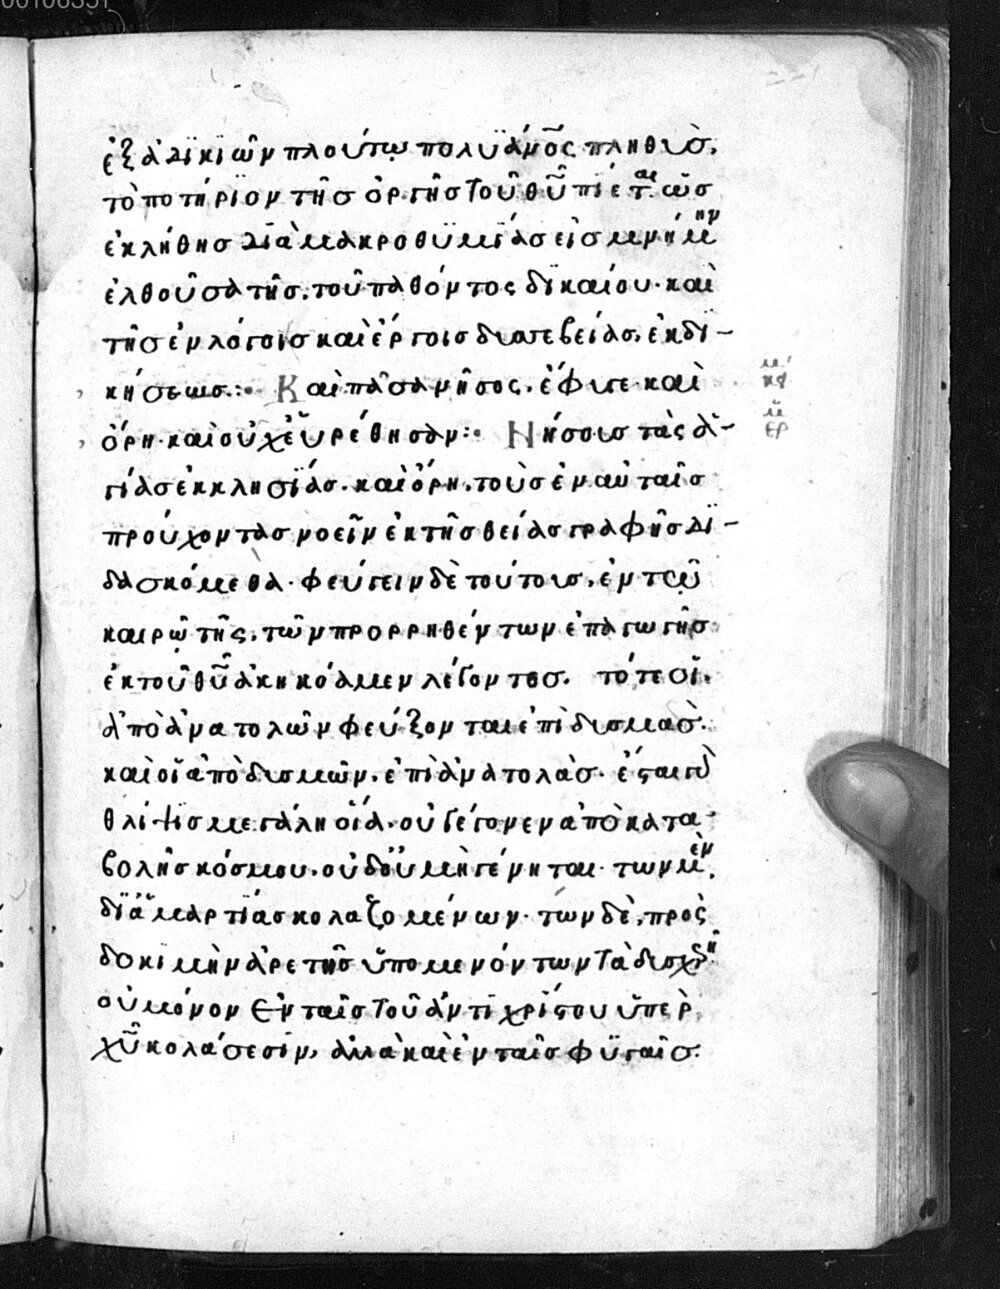 ἐξ ἀδικιῶν πλούτω πολυάν̅ο̅ς πληθὺσ.
τὸ ποτήριον τῆσ ὀργῆσ τοῦ θῦ πίεται. ὡσ
ἐκλήθησ διὰ μακροθυμίασ εἰσ μνήμην
ἐλθοῦσα τῆσ. τοῦ παθόντος δικαίου. καὶ
τῆσ ἐν λόγοισ καὶ ἔργοισ δυσσεβείασ. ἐκδι-
κήσεωσ:· Καὶ πᾶσα νῆσος. ἔφυγε. καὶ
ὄρη. καὶ οὐχ εὑρέθησαν:· Νήσουσ τὰς ἁ-
γίασ ἐκκλησίασ. καὶ ὄρη. τοὺσ ἐν αὐταῖσ
προύχοντασ νοεῖν ἐκ τῆσ θείασ γραφῆσ δι-
δασκόμεθα. φεύγειν δὲ τούτουσ. ἐν τῶ
καιρῶ τῆς. τῶν προρρηθέντων ἐπαγωγῆσ
ἐκ τοῦ θῦ ἀκηκόαμεν λέγοντοσ. τότε οἱ.
ἀπὸ ἀνατολῶν φεύξονται ἐπὶ δυσμασ.
καὶ οἱ ἀπὸ δυσμῶν. ἐπὶ ἀνατολὰσ. ἔσται γὰρ
θλίψισ μεγάλη οἵα. οὐ γέγονεν ἀπὸ κατα-
βολῆσ κόσμου. οὐδ' οὐ μὴ γένηται. τῶν μὲν.
δι' ἁμαρτίασ κολαζομένων. τῶν δὲ. πρὸς
δοκιμὴν ἀρετῆσ ὑπομενόντων τὰ δυσχερῆ
οὐ μόνον ἐν ταῖσ τοῦ ἀντιχρίστου ὑπὲρ
χῦ κολάσεσιν, ἀλλὰ καὶ ἐν ταῖσ φυγαῖσ.